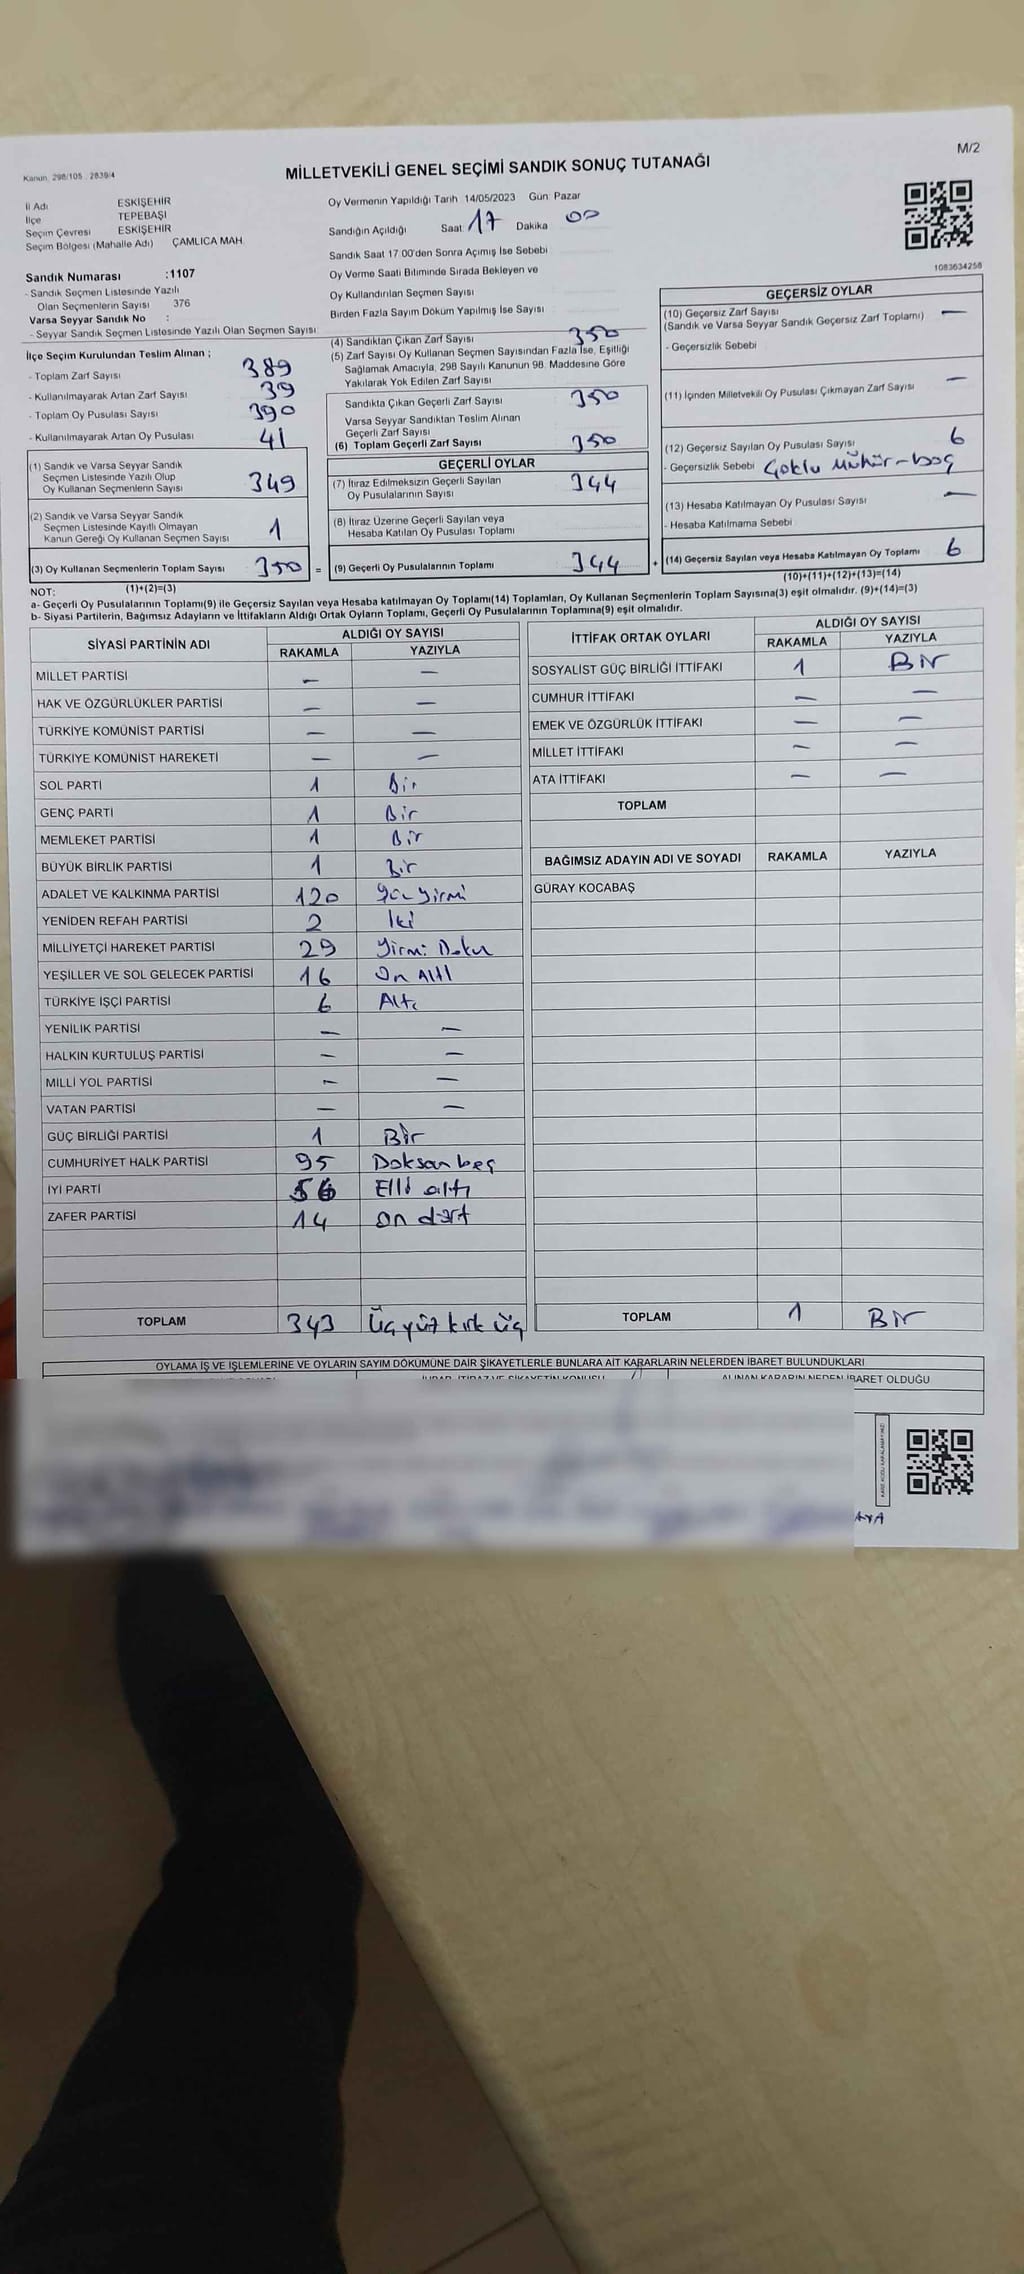 M/2
Kanun 298/105 2839/4
MİLLETVEKİLİ GENEL SEÇİMİ SANDIK SONUÇ TUTANAĞI
İl Adı ESKİŞEHİR
İlçe TEPEBAŞI
Seçim Çevresi ESKİŞEHİR
Seçim Bölgesi (Mahalle Adı) ÇAMLICA MAH.
Sandık Numarası :1107
- Sandık Seçmen Listesinde Yazılı
Olan Seçmenlerin Sayısı 376
Varsa Seyyar Sandık No :
- Seyyar Sandık Seçmen Listesinde Yazılı Olan Seçmen Sayısı:
İlçe Seçim Kurulundan Teslim Alınan ;
- Toplam Zarf Sayısı 389
- Kullanılmayarak Artan Zarf Sayısı 39
- Toplam Oy Pusulası Sayısı 390
- Kullanılmayarak Artan Oy Pusulası 41
(1) Sandık ve Varsa Seyyar Sandık
Seçmen Listesinde Yazılı Olup
Oy Kullanan Seçmenlerin Sayısı 349
(2) Sandık ve Varsa Seyyar Sandık
Seçmen Listesinde Kayıtlı Olmayan
Kanun Gereği Oy Kullanan Seçmen Sayısı 1
(3) Oy Kullanan Seçmenlerin Toplam Sayısı 350 =
(1)+(2)=(3)
Oy Vermenin Yapıldığı Tarih 14/05/2023 Gün: Pazar
Sandığın Açıldığı Saat: 17 Dakika 00
Sandık Saat 17:00'den Sonra Açımış İse Sebebi
Oy Verme Saati Bitiminde Sırada Bekleyen ve
Oy Kullandırılan Seçmen Sayısı
Birden Fazla Sayım Döküm Yapılmış İse Sayısı
(4) Sandıktan Çıkan Zarf Sayısı 350
(5) Zarf Sayısı Oy Kullanan Seçmen Sayısından Fazla İse, Eşitliği
Sağlamak Amacıyla, 298 Sayılı Kanunun 98. Maddesine Göre
Yakılarak Yok Edilen Zarf Sayısı
Sandıkta Çıkan Geçerli Zarf Sayısı 350
Varsa Seyyar Sandıktan Teslim Alınan
Geçerli Zarf Sayısı
(6) Toplam Geçerli Zarf Sayısı 350
GEÇERLİ OYLAR
(7) İtiraz Edilmeksizin Geçerli Sayılan
Oy Pusulalarının Sayısı 344
(8) İtiraz Üzerine Geçerli Sayılan veya
Hesaba Katılan Oy Pusulası Toplamı
(9) Geçerli Oy Pusulalarının Toplamı 344 +
1083634258
GEÇERSİZ OYLAR
(10) Geçersiz Zarf Sayısı —
(Sandık ve Varsa Seyyar Sandık Geçersiz Zarf Toplamı)
- Geçersizlik Sebebi
(11) İçinden Milletvekili Oy Pusulası Çıkmayan Zarf Sayısı —
(12) Geçersiz Sayılan Oy Pusulası Sayısı 6
- Geçersizlik Sebebi Çoklu Mühür-boş
(13) Hesaba Katılmayan Oy Pusulası Sayısı —
- Hesaba Katılmama Sebebi
(14) Geçersiz Sayılan veya Hesaba Katılmayan Oy Toplamı 6
(10)+(11)+(12)+(13)=(14)
NOT:
a- Geçerli Oy Pusulalarının Toplamı(9) ile Geçersiz Sayılan veya Hesaba katılmayan Oy Toplamı(14) Toplamları, Oy Kullanan Seçmenlerin Toplam Sayısına(3) eşit olmalıdır. (9)+(14)=(3)
b- Siyasi Partilerin, Bağımsız Adayların ve İttifakların Aldığı Ortak Oyların Toplamı, Geçerli Oy Pusulalarının Toplamına(9) eşit olmalıdır.
SİYASİ PARTİNİN ADI ALDIĞI OY SAYISI
RAKAMLA YAZIYLA
MİLLET PARTİSİ — —
HAK VE ÖZGÜRLÜKLER PARTİSİ — —
TÜRKİYE KOMÜNİST PARTİSİ — —
TÜRKİYE KOMÜNİST HAREKETİ — —
SOL PARTİ 1 Bir
GENÇ PARTİ 1 Bir
MEMLEKET PARTİSİ 1 Bir
BÜYÜK BİRLİK PARTİSİ 1 Bir
ADALET VE KALKINMA PARTİSİ 120 Yüz Yirmi
YENİDEN REFAH PARTİSİ 2 İki
MİLLİYETÇİ HAREKET PARTİSİ 29 Yirmi Dokuz
YEŞİLLER VE SOL GELECEK PARTİSİ 16 On Altı
TÜRKİYE İŞÇİ PARTİSİ 6 Altı
YENİLİK PARTİSİ — —
HALKIN KURTULUŞ PARTİSİ — —
MİLLİ YOL PARTİSİ — —
VATAN PARTİSİ — —
GÜÇ BİRLİĞİ PARTİSİ 1 Bir
CUMHURİYET HALK PARTİSİ 95 Doksan beş
İYİ PARTİ 56 Elli altı
ZAFER PARTİSİ 14 on dört
TOPLAM 343 Üç yüz kırk üç
İTTİFAK ORTAK OYLARI ALDIĞI OY SAYISI
RAKAMLA YAZIYLA
SOSYALİST GÜÇ BİRLİĞİ İTTİFAKI 1 Bir
CUMHUR İTTİFAKI — —
EMEK VE ÖZGÜRLÜK İTTİFAKI — —
MİLLET İTTİFAKI — —
ATA İTTİFAKI — —
TOPLAM
BAĞIMSIZ ADAYIN ADI VE SOYADI RAKAMLA YAZIYLA
GÜRAY KOCABAŞ
TOPLAM 1 Bir
OYLAMA İŞ VE İŞLEMLERİNE VE OYLARIN SAYIM DÖKÜMÜNE DAİR ŞİKAYETLERLE BUNLARA AİT KARARLARIN NELERDEN İBARET BULUNDUKLARI
ALINAN KARARIN NEDEN İBARET OLDUĞU